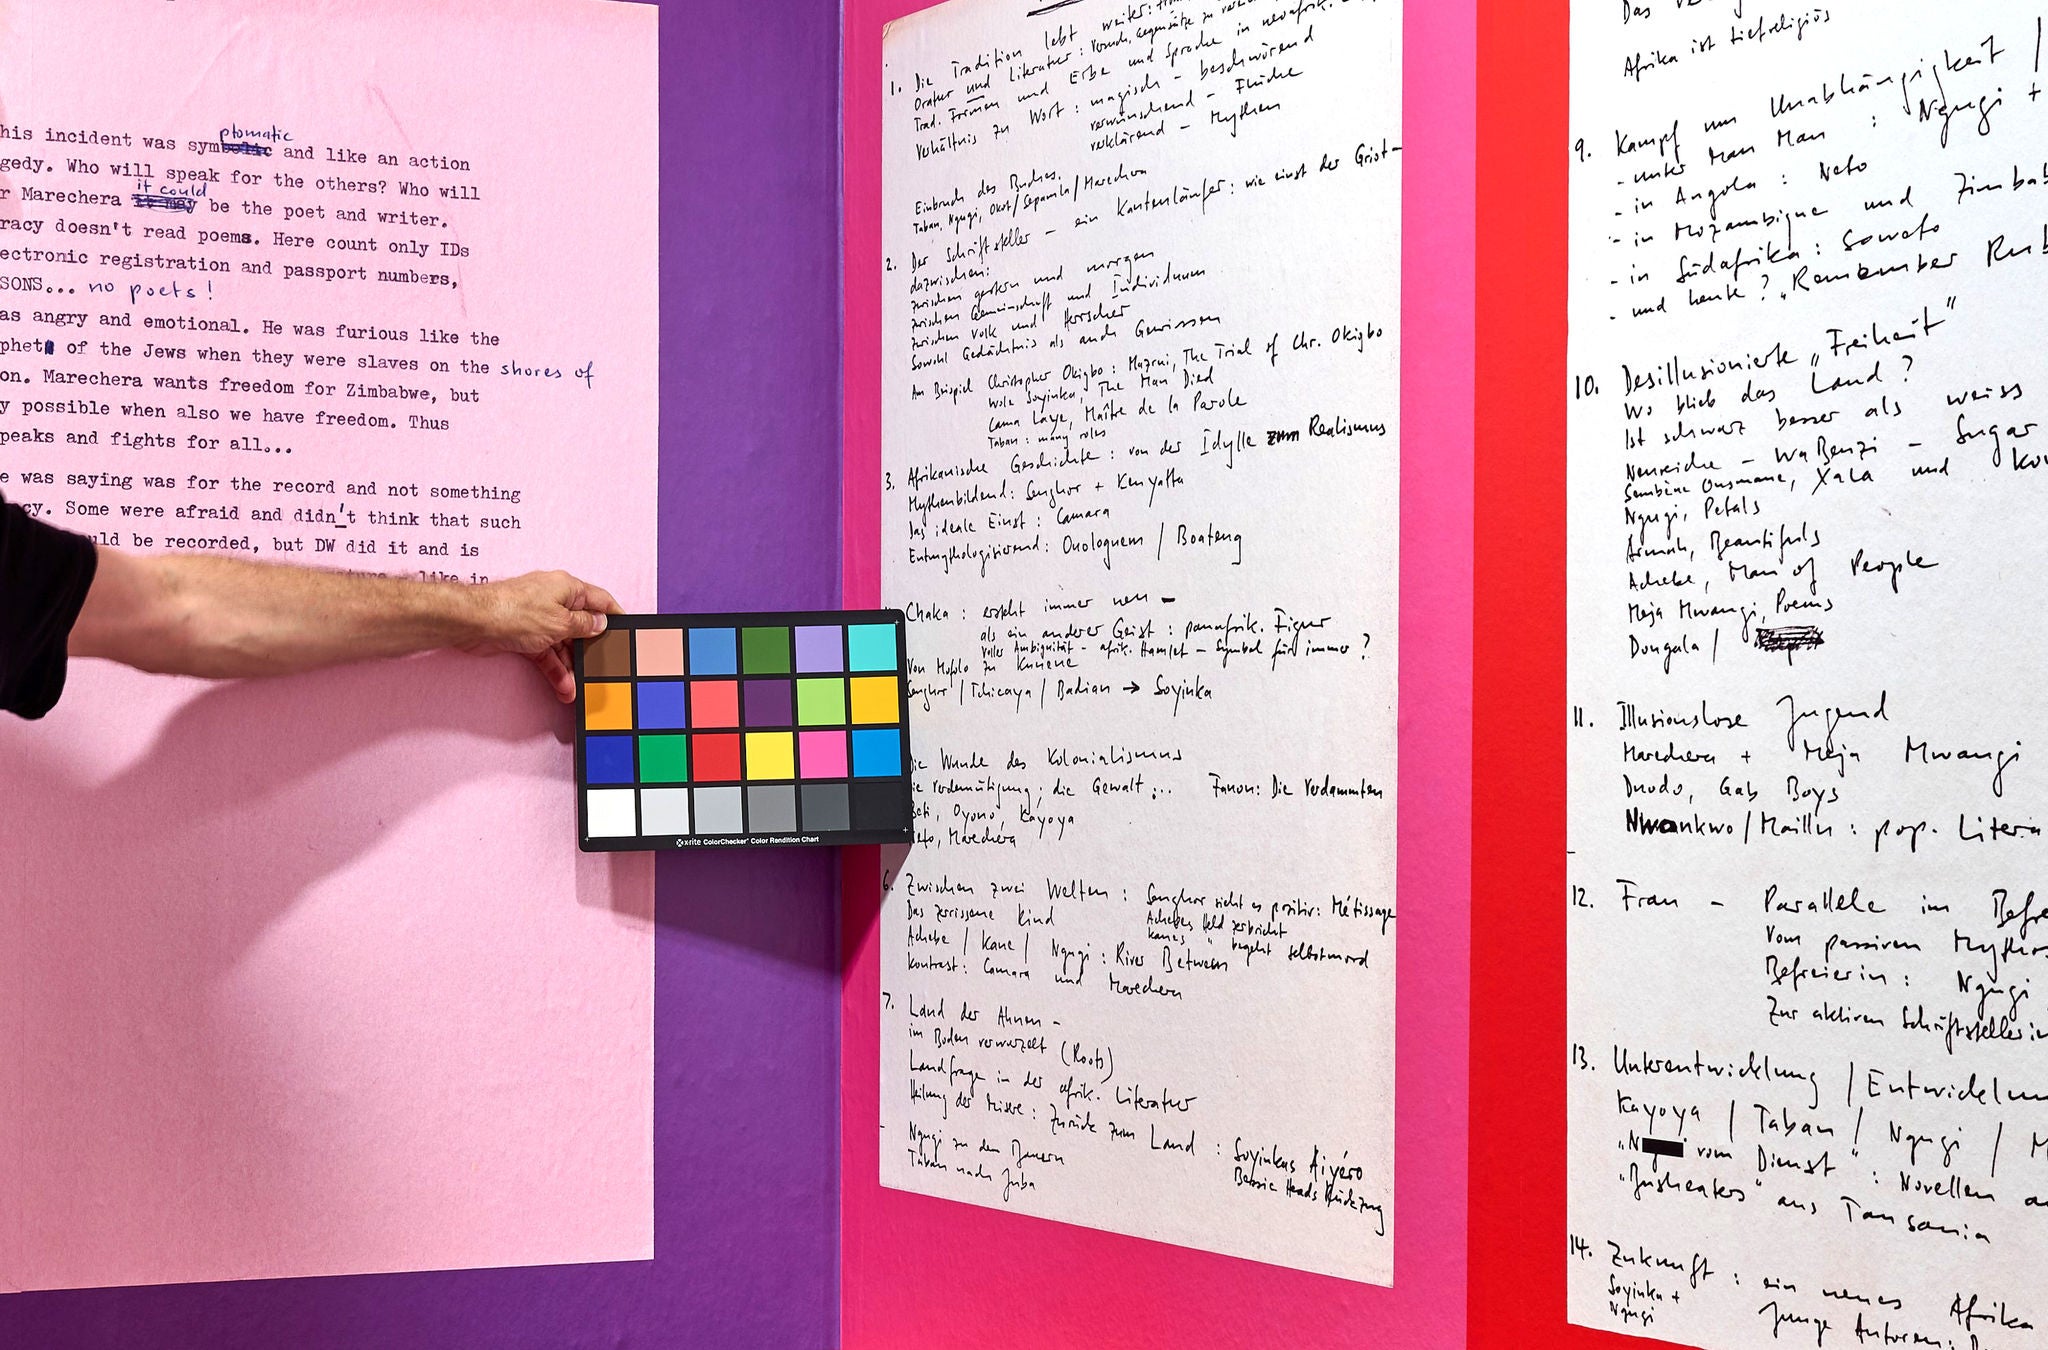 his incident was symptomatic and like an action
gedy. Who will speak for the others? Who will
r Marechera it could be the poet and writer.
racy doesn't read poems. Here count only IDs
ectronic registration and passport numbers,
SONS... no poets!
as angry and emotional. He was furious like the
phet of the Jews when they were slaves on the shores of
on. Marechera wants freedom for Zimbabwe, but
y possible when also we have freedom. Thus
peaks and fights for all...
e was saying was for the record and not something
cy. Some were afraid and didn't think that such
uld be recorded, but DW did it and is
like in
x-rite ColorChecker Color Rendition Chart
1. Die Tradition lebt weiter:
Oratur und Literatur: Versuch, Gegensätze zu
Trad. Formen und Erbe und Sprache in neoafrik.
Verhältnis zu Wort: magisch - beschwörend
verwünschend - Flüche
verklärend - Mythen
Einbruch des Buches.
Taban, Ngugi, Okot/Sepamla/Marechera
2. Der Schriftsteller - ein Kantenläufer: wie einst der Griot -
dazwischen:
zwischen gestern und morgen
zwischen Gemeinschaft und Individuum
zwischen Volk und Herrscher
Sowohl Gedächtnis als auch Gewissen
Am Beispiel Christopher Okigbo: Mazrui, The Trial of Chr. Okigbo
Wole Soyinka, The Man Died
Cama Laye, Maître de la Parole
Taban: many roles
3. Afrikanische Geschichte: von der Idylle zum Realismus
Mythenbildend: Senghor + Kenyatta
Das ideale Einst: Camara
Entmythologisierend: Ouologuem / Boateng
Chaka: ersteht immer neu -
als ein anderer Geist: panafrik. Figur
voller Ambiguität - afrik. Hamlet - Symbol für immer?
Von Mofolo zu Kunene
Senghor / Tchicaya / Badian → Soyinka
Die Wunde des Kolonialismus
ie Verdemütigung; die Gewalt ... Fanon: Die Verdammten
Beti, Oyono, Kayoya
Neto, Marechera
6. Zwischen zwei Welten: Senghor sieht es positiv: Métissage
Das zerrissene Kind Achebes Held zerbricht
Kanes " begeht Selbstmord
Achebe / Kane / Ngugi: River Between
Kontrast: Camara und Marechera
7. Land der Ahnen -
im Boden verwurzelt (Roots)
Landfrage in der afrik. Literatur
Heilung der Misere: Zurück zum Land: Soyinkas Aiyéro
Bessie Heads
Ngugi zu den Bauern
Taban nach Juba
Das
Afrika ist tiefreligiös
9. Kampf um Unabhängigkeit /
- unter Mau Mau: Ngugi +
- in Angola: Neto
- in Mozambique und Zimbab
- in Südafrika: Soweto
- und heute? "Remember Rub
10. Desillusionierte "Freiheit"
Wo blieb das Land?
Ist schwarz besser als weiss
Neureiche - WaBenzi - Sugar
Sembène Ousmane, Xala und
Ngugi, Petals
Armah, Beautifuls
Achebe, Man of People
Meja Mwangi, Poems
Dongala /
11. Illusionslose Jugend
Marechera + Meja Mwangi
Duodo, Gab Boys
Nwankwo/Maillu: pop. Litera
12. Frau - Parallele im Befre
vom passiven Mythos
Befreierin: Ngugi
Zur aktiven Schriftstellerin
13. Unterentwicklung / Entwicklun
Kayoya / Taban / Ngugi / M
"N vom Dienst": Novellen a
aus Tansania
14. Zukunft: ein neues Afrika
Soyinka +
Ngugi
Junge Autoren: